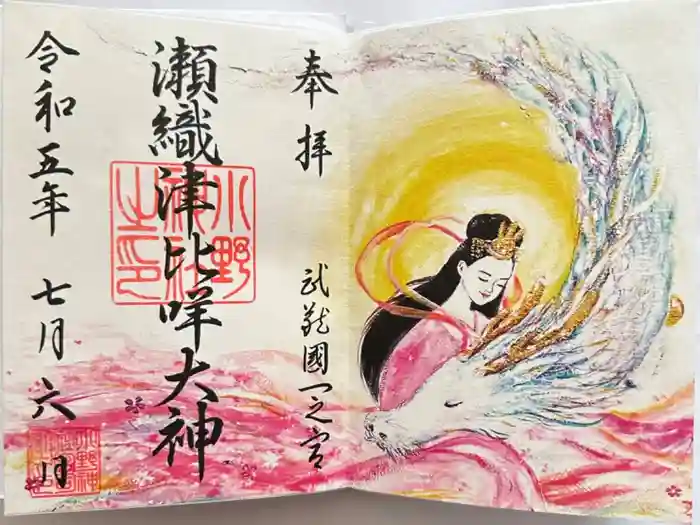 奉拝
武蔵國一之宮
瀬織津比咩大神
小野神社之印
令和五年 七月六日
小野神